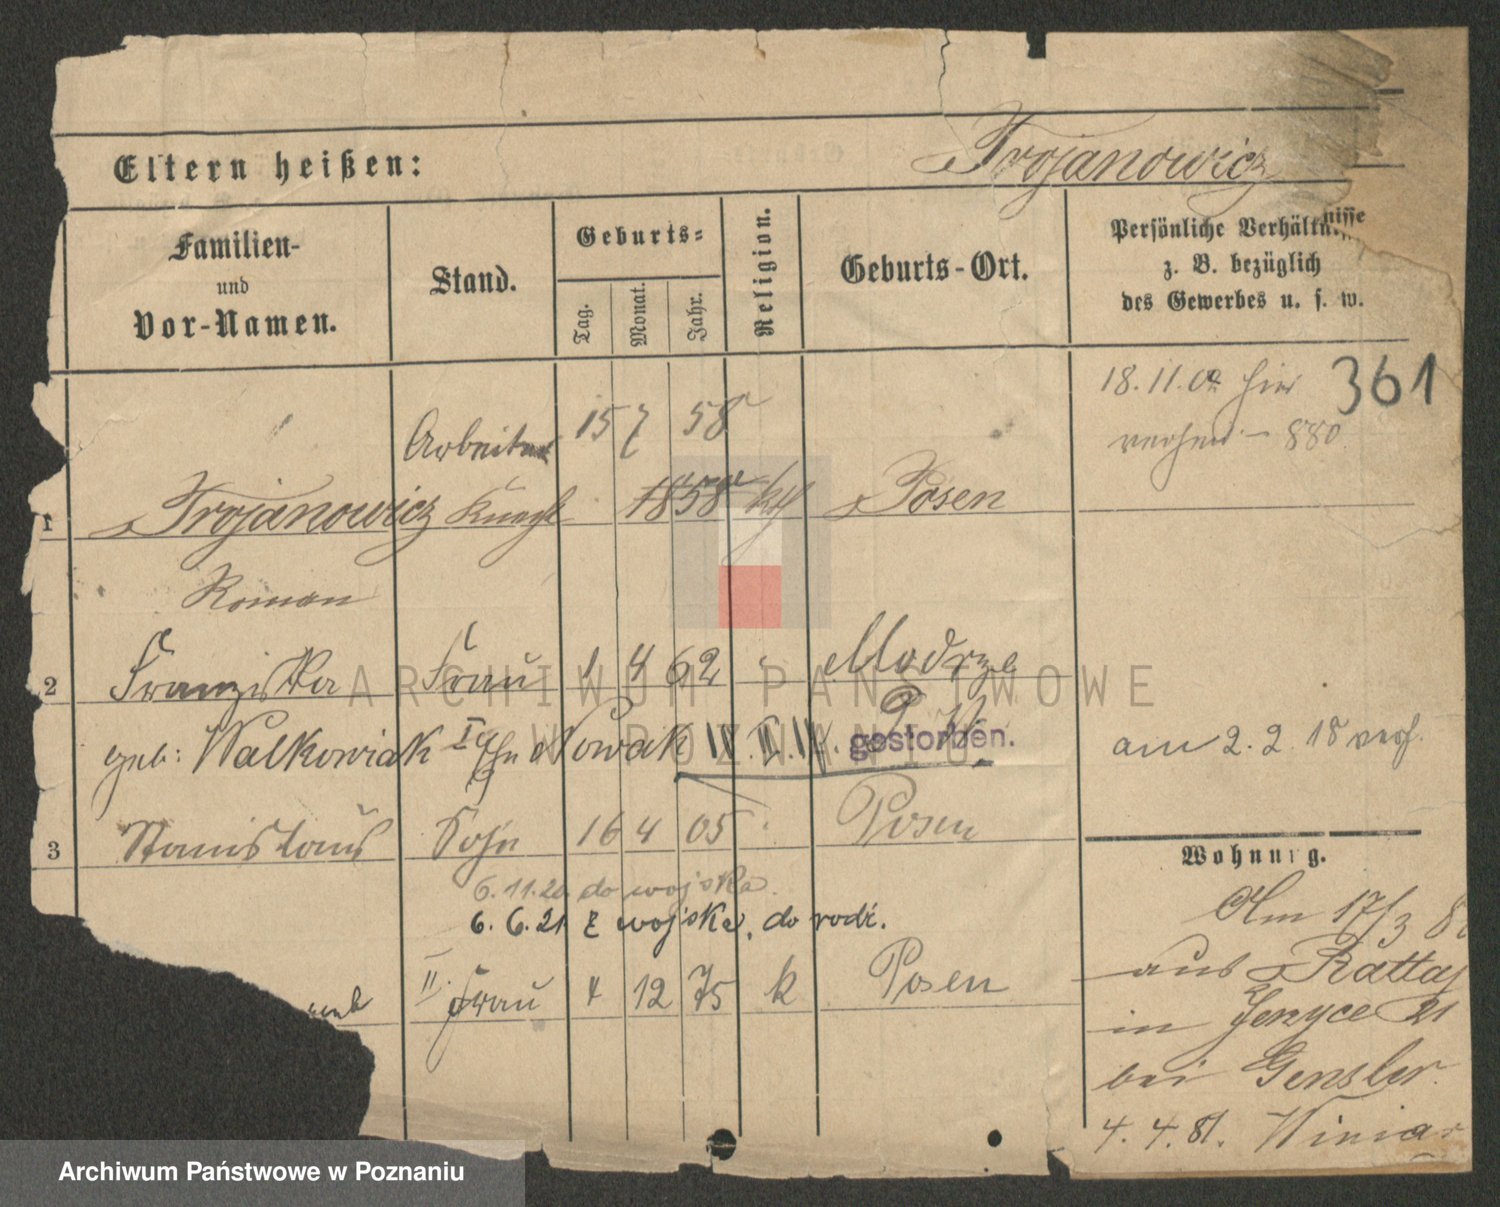 Trojanowicz
Eltern heißen:
Familien-
und
Vor-Namen.
Stand.
Geburts-
Tag.
Monat.
Jahr.
Religion.
Geburts-Ort.
Persönliche Verhältnisse
z. B. bezüglich
des Gewerbes u. s. w.
18. 11. 02 hier 361
880
Arbeiter 15 7 58
1 Trojanowicz Knecht 1858 kth Posen
Roman
2 Franziska Frau 1 4 62 Modrze
geb: Walkowiak I Ehe Nowak gestorben. am 2. 2 18 verh.
3 Stanislaus Sohn 16 4 05 Posen
6. 11. 20 do wojska.
6. 6. 21 z wojska, do rodz.
II. Frau 4 12 75 k Posen
Wohnung.
Am 17/3 8
aus Rattaj
in Jerzyce 21
bei Gensler.
4. 4. 81. Winiar
ARCHIWUM PAŃSTWOWE
W POZNANIU
Archiwum Państwowe w Poznaniu